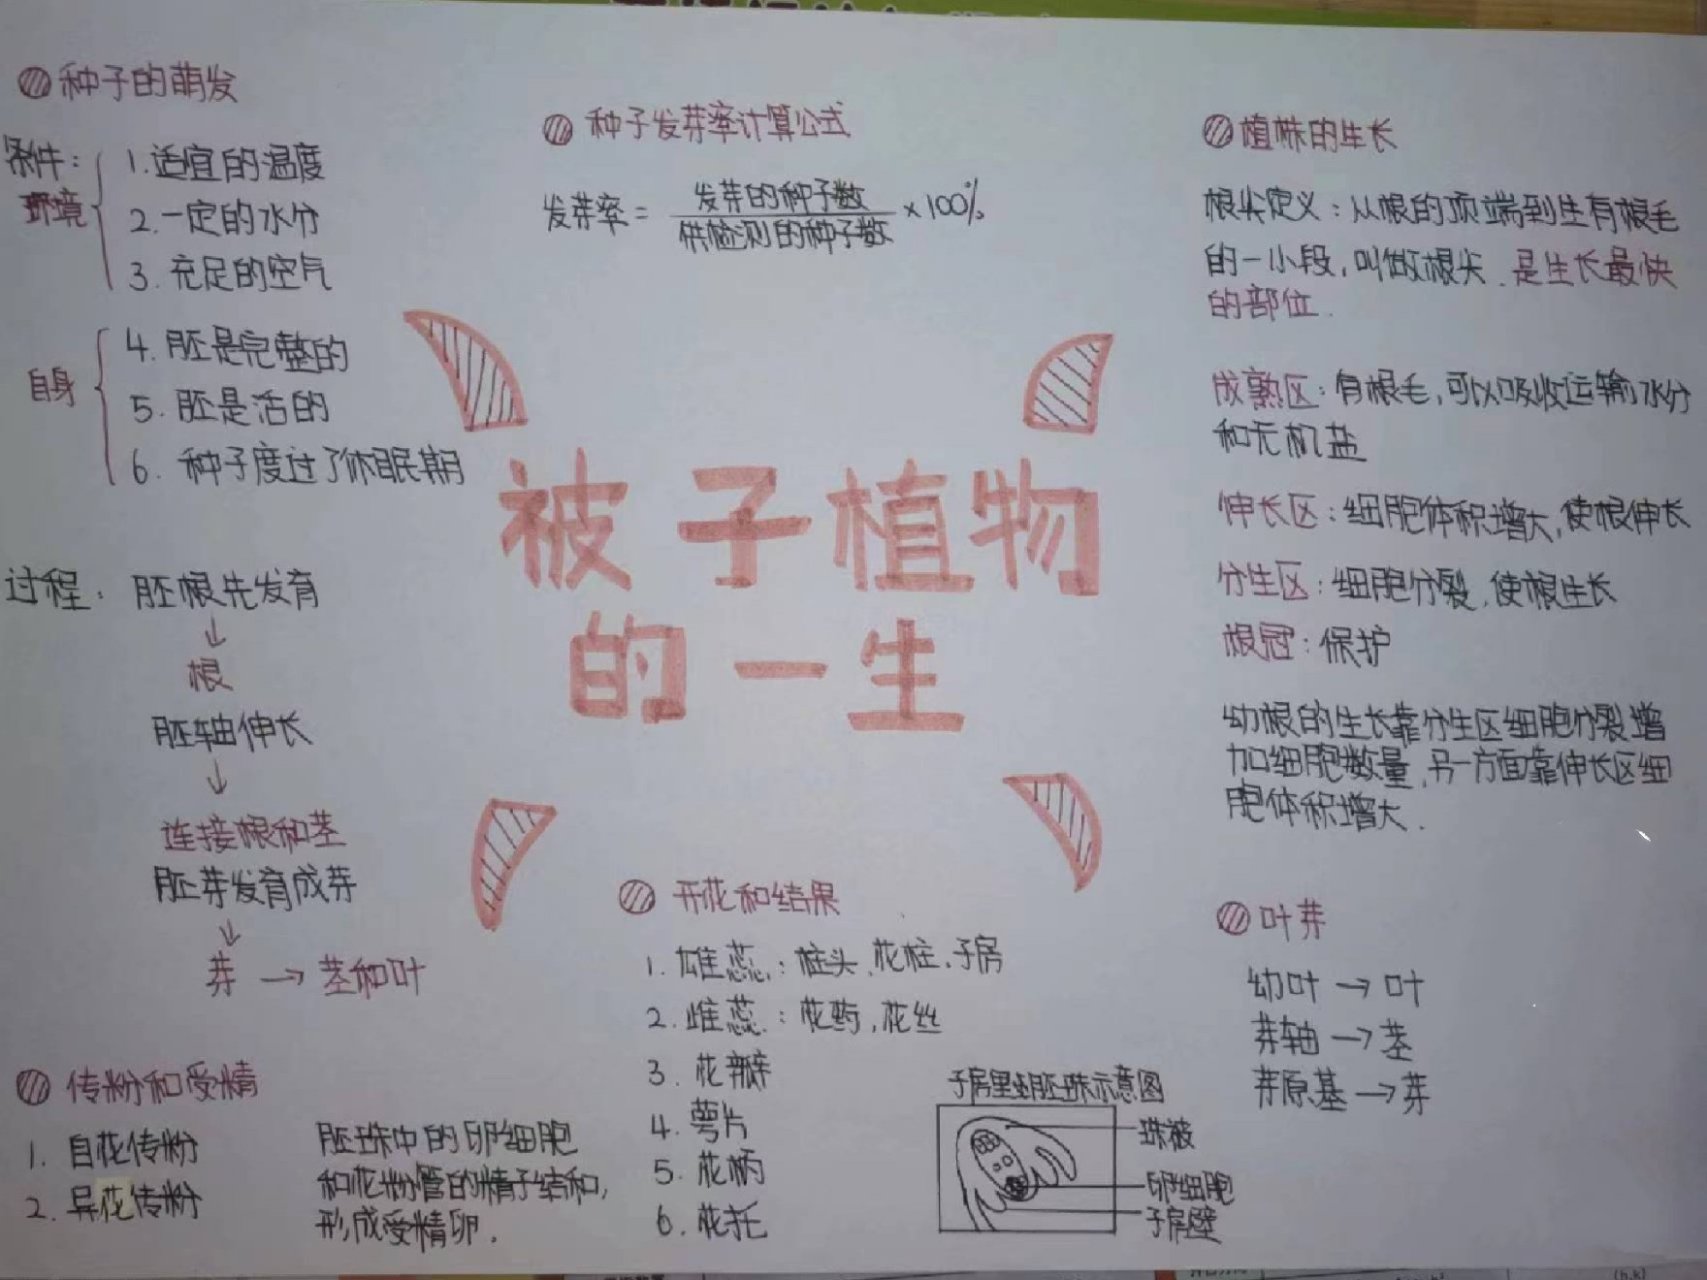 种子的萌发
条件：
环境
1.适宜的温度
2.一定的水分
3.充足的空气
自身
4.胚是完整的
5.胚是活的
6.种子度过了休眠期
过程：胚根先发育
↓
根
胚轴伸长
↓
连接根和茎
胚芽发育成芽
↓
芽→茎和叶
传粉和受精
1.自花传粉
2.异花传粉
胚珠中的卵细胞
和花粉管的精子结合,
形成受精卵.
种子发芽率计算公式
发芽率=发芽的种子数
供检测的种子数
×100%
被子植物
的一生
开花和结果
1.雄蕊:柱头、花柱、子房
2.雌蕊:花药,花丝
3.花瓣
4.萼片
5.花柄
6.花托
子房里胚珠示意图
珠被
卵细胞
子房壁
植株的生长
根尖定义:从根的顶端到生有根毛
的一小段,叫做根尖.是生长最快
的部位.
成熟区:有根毛,可以吸收运输水分
和无机盐
伸长区:细胞体积增大,使根伸长
分生区:细胞分裂,使根生长
根冠:保护
幼根的生长靠分生区细胞分裂增
加细胞数量,另一方面靠伸长区细
胞体积增大.
叶芽
幼叶→叶
芽轴→茎
芽原基→芽